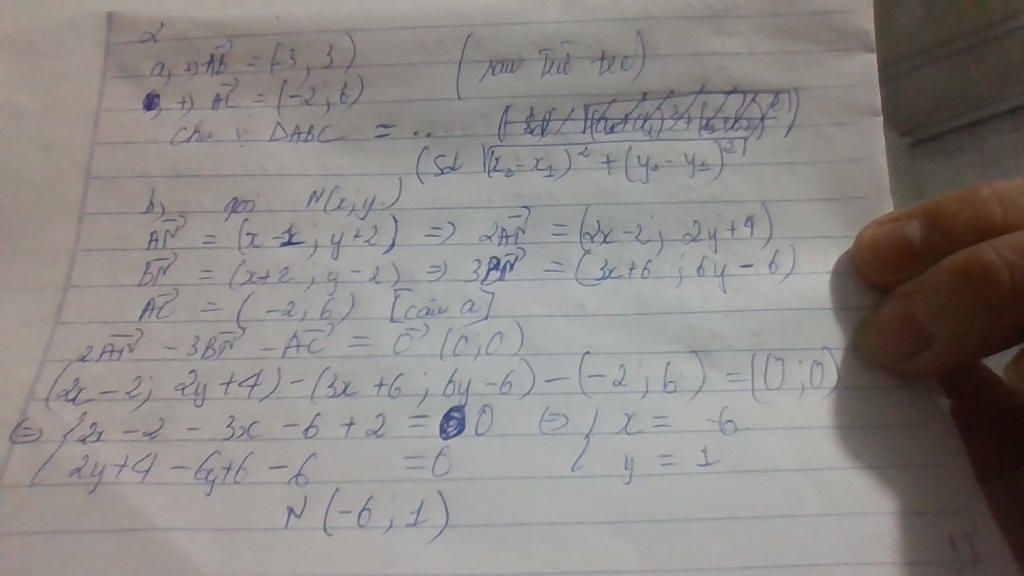 2
a, +) AB→ = (-3 ; 3)
+) AC→ = (-2 ; 6)
Chu vi ΔABC = ....
(Sd √(x₂-x₁)² + (y₂-y₁)²)
b, gọi N(x; y)
AN→ = (x-1 ; y+2) => 2AN→ = (2x-2 ; 2y+4)
BN→ = (x+2 ; y-2) => 3BN→ = (3x+6 ; 6y-6)
AC→ = (-2 ; 6) [câu a]
2AN→ - 3BN→ - AC→ = 0→ (0;0)
(2x-2 ; 2y+4) - (3x+6 ; 6y-6) - (-2 ; 6) = (0 ; 0)
<=> { 2x - 2 - 3x - 6 + 2 = 0 <=> { x = -6
2y+4 - 6y+6 - 6 = 0 y = 1
N (-6 ; 1)